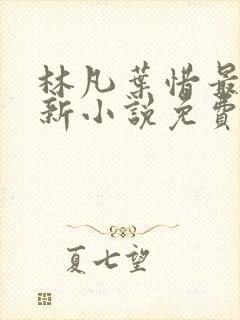 林凡葉惜最
新小說免費
夏七望